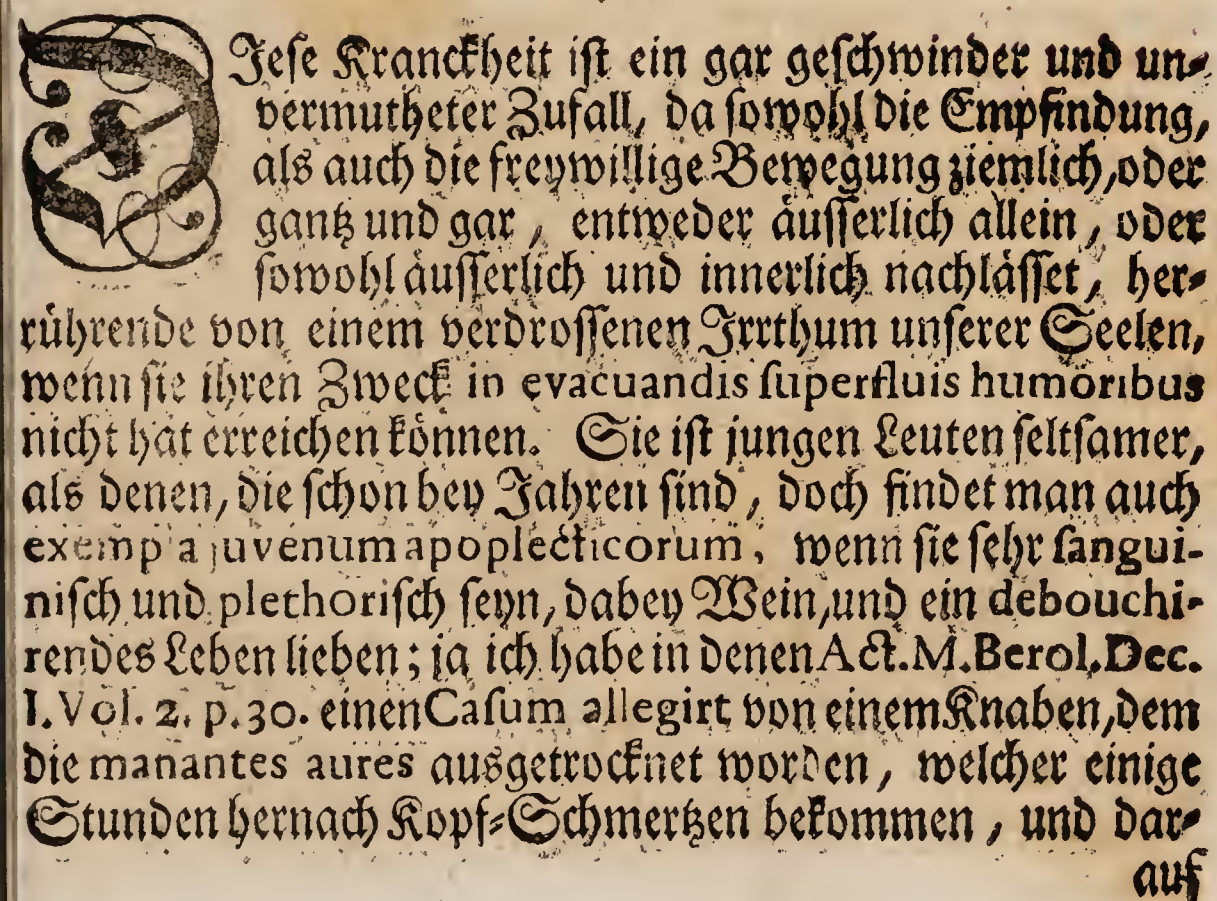 DIeſe Kranckheit iſt ein gar geſchwinder und un⸗
vermutheter Zufall, da ſowohl die Empfindung,
als auch die freywillige Bewegung ziemlich, oder
gantz und gar, entweder äuſſerlich allein, oder
ſowohl äuſſerlich und innerlich nachläſſet, her⸗
rührende von einem verdroſſenen Irrthum unſerer Seelen,
wenn ſie ihren Zweck in evacuandis ſuperfluis humoribus
nicht hat erreichen können. Sie iſt jungen Leuten ſeltſamer,
als denen, die ſchon bey Jahren ſind, doch findet man auch
exempla juvenum apoplecticorum, wenn ſie ſehr ſangui-
niſch und plethoriſch ſeyn, dabey Wein, und ein debouchi-
rendes Leben lieben; ja ich habe in denen Act. M. Berol. Dec.
I. Vol. 2. p. 30. einen Caſum allegirt von einem Knaben, dem
die manantes aures ausgetrocknet worden, welcher einige
Stunden hernach Kopf⸗Schmertzen bekommen, und dar⸗
auf